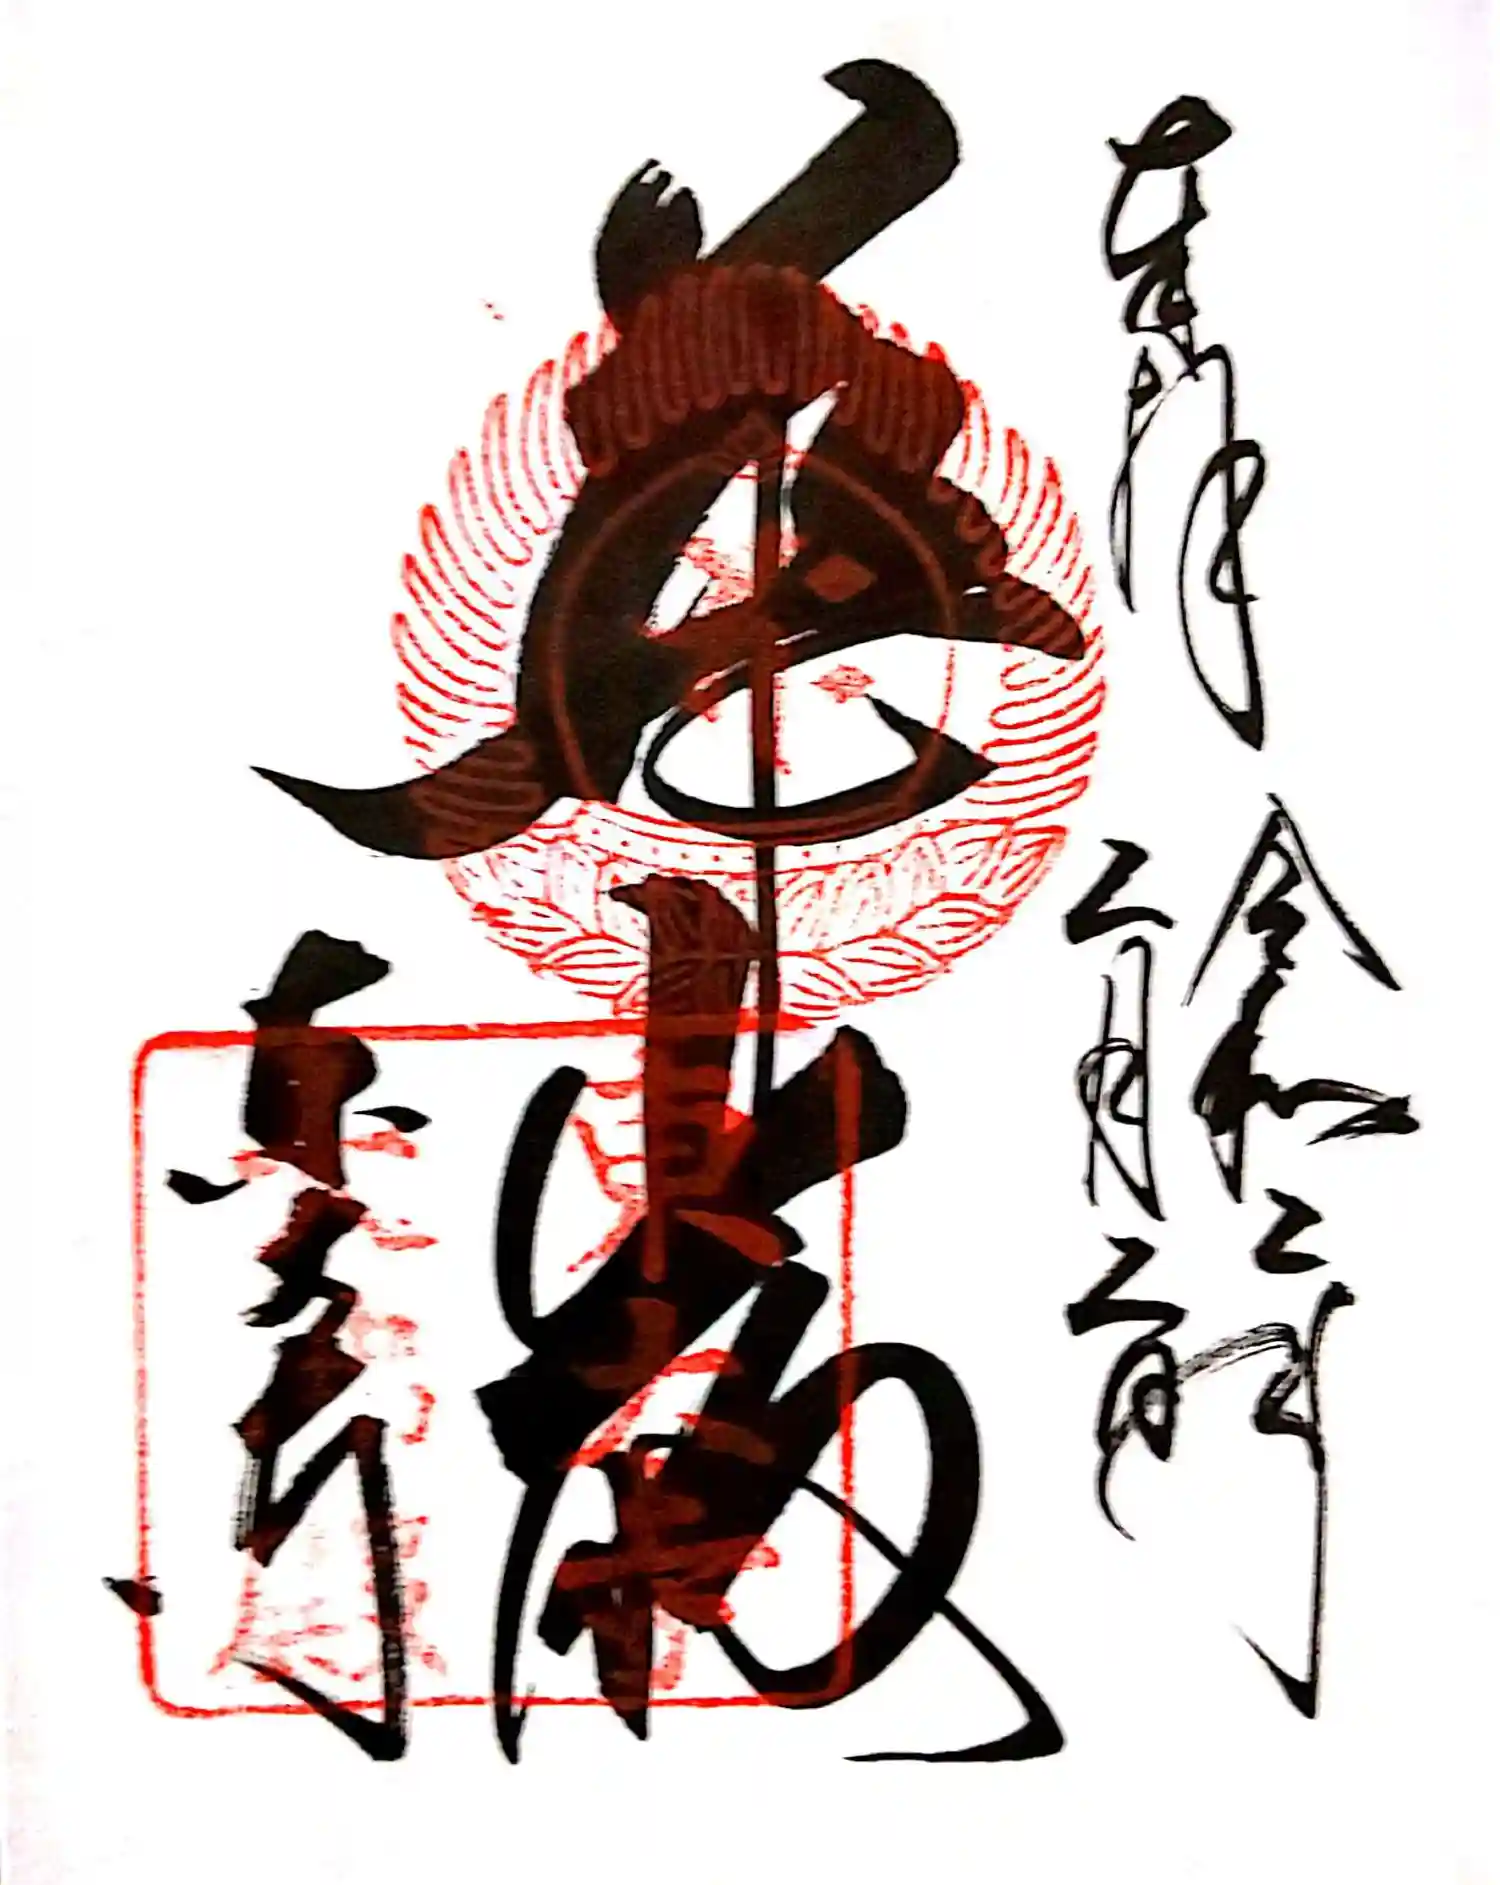 奉拝
令和二年
二月二日
華嚴
東大寺